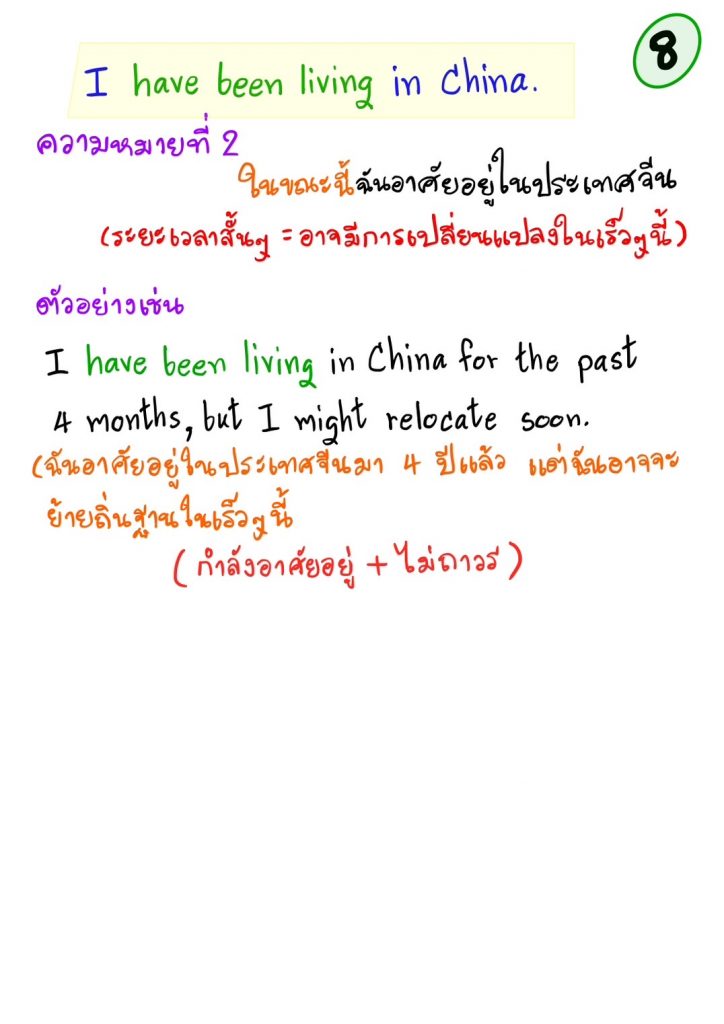 8
I have been living in China.
ความหมายที่ 2
ในขณะนี้ฉันอาศัยอยู่ในประเทศจีน
(ระยะเวลาสั้นๆ = อาจมีการเปลี่ยนแปลงในเร็วๆนี้)
ตัวอย่างเช่น
I have been living in China for the past
4 months, but I might relocate soon.
(ฉันอาศัยอยู่ในประเทศจีนมา 4 ปีแล้ว แต่ฉันอาจจะ
ย้ายถิ่นฐานในเร็วๆนี้
(กำลังอาศัยอยู่ + ไม่ถาวร)